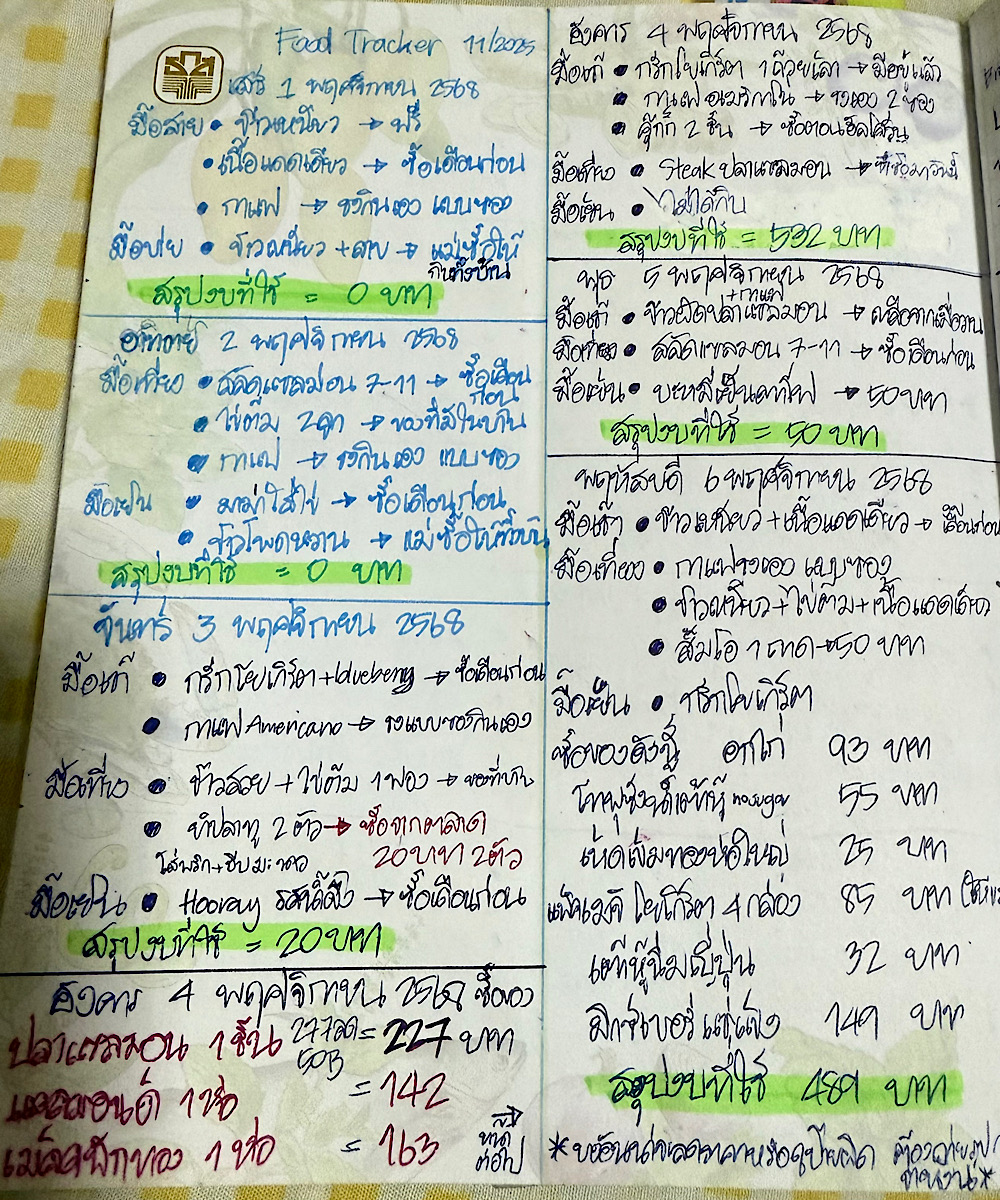 Food Tracker 11/2025
เสาร์ 1 พฤศจิกายน 2568
มื้อสาย • ข้าวเหนียว → ฟรี
• เนื้อแดดเดียว → ซื้อเดือนก่อน
• กาแฟ → ชงกินเอง แบบซอง
มื้อบ่าย • ข้าวเหนียว + ลาบ → แม่ซื้อให้
กินทั้งบ้าน
สรุปงบที่ใช้ = 0 บาท
อาทิตย์ 2 พฤศจิกายน 2568
มื้อเที่ยง • สลัดแซลมอน 7-11 → ซื้อเดือน
ก่อน
• ไข่ต้ม 2 ลูก → ของที่มีในบ้าน
• กาแฟ → ชงกินเอง แบบซอง
มื้อเย็น • มาม่าใส่ไข่ → ซื้อเดือนก่อน
• ข้าวโพดหวาน → แม่ซื้อให้
สรุปงบที่ใช้ = 0 บาท
จันทร์ 3 พฤศจิกายน 2568
มื้อเช้า • กรีกโยเกิร์ต + blueberry → ซื้อเดือนก่อน
• กาแฟ Americano → ชงแบบซองกินเอง
มื้อเที่ยง • ข้าวสวย + ไข่ต้ม 1 ฟอง → ของที่บ้าน
• ยำปลาทู 2 ตัว → ซื้อจากตลาด
ใส่พริก + บีบมะนาว 20 บาท 2 ตัว
มื้อเย็น • Hooray → ซื้อเดือนก่อน
สรุปงบที่ใช้ = 20 บาท
อังคาร 4 พฤศจิกายน 2568 ซื้อของ
ปลาแซลมอน 1 ชิ้น 277 ลด 50 B = 227 บาท
แอลมอนด์ 1 ห่อ = 142
เมล็ดฟักทอง 1 ห่อ = 163
หน้า
ต่อไป
อังคาร 4 พฤศจิกายน 2568
มื้อเช้า • กรีกโยเกิร์ต 1 ถ้วย → มีอยู่แล้ว
• กาแฟ อเมริกาโน → ชงเอง 2 ซอง
• คุ๊กกี้ 2 ชิ้น → ซื้อตอนฮัลโลวีน
มื้อเที่ยง • Steak ปลาแซลมอน → ที่ซื้อมาวันนี้
มื้อเย็น • ไม่ได้กิน
สรุปงบที่ใช้ = 532 บาท
พุธ 5 พฤศจิกายน 2568
+ กาแฟ
มื้อเช้า • ข้าวผัดปลาแซลมอน → เหลือจากเมื่อวาน
มื้อเที่ยง • สลัดแซลมอน 7-11 → ซื้อเดือนก่อน
มื้อเย็น • บะหมี่ → 50 บาท
สรุปงบที่ใช้ = 50 บาท
พฤหัสบดี 6 พฤศจิกายน 2568
มื้อเช้า • ข้าวเหนียว + เนื้อแดดเดียว → เดือนก่อน
มื้อเที่ยง • กาแฟชงเอง แบบซอง
• ข้าวเหนียว + ไข่ต้ม + เนื้อแดดเดียว
• ส้มโอ 1 ถาด → 50 บาท
มื้อเย็น • กรีกโยเกิร์ต
ซื้อของดังนี้ อกไก่ 93 บาท
โทฟุซังน้ำเต้าหู้ no sugar 55 บาท
เห็ดเข็มทองห่อใหญ่ 25 บาท
เมจิ โยเกิร์ต 4 กล่อง 85 บาท
เต้าหู้นิ่มญี่ปุ่น 32 บาท
มิกซ์เบอร์รี่แช่แข็ง 149 บาท
สรุปงบที่ใช้ 489 บาท